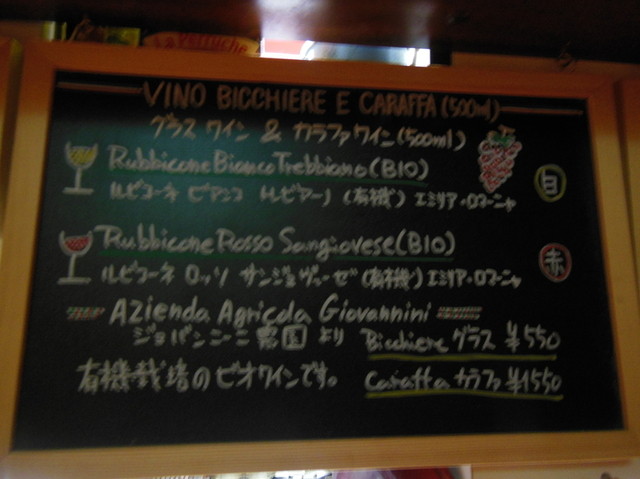 VINO BICCHIERE E CARAFFA (500ml)
グラスワイン & カラファワイン(500ml)
Rubbicone Bianco Trebbiano (BIO)
ルビコーネ ビアンコ トレビアーノ (有機) エミリア・ロマーニャ
白
Rubbicone Rosso Sangiovese (BIO)
ルビコーネ ロッソ サンジョヴェーゼ (有機) エミリア・ロマーニャ
赤
Azienda Agricola Giovannini
ジョバンニーニ農園 より
Bicchiere グラス ¥550
有機栽培のビオワインです。
Caraffa カラファ ¥1550